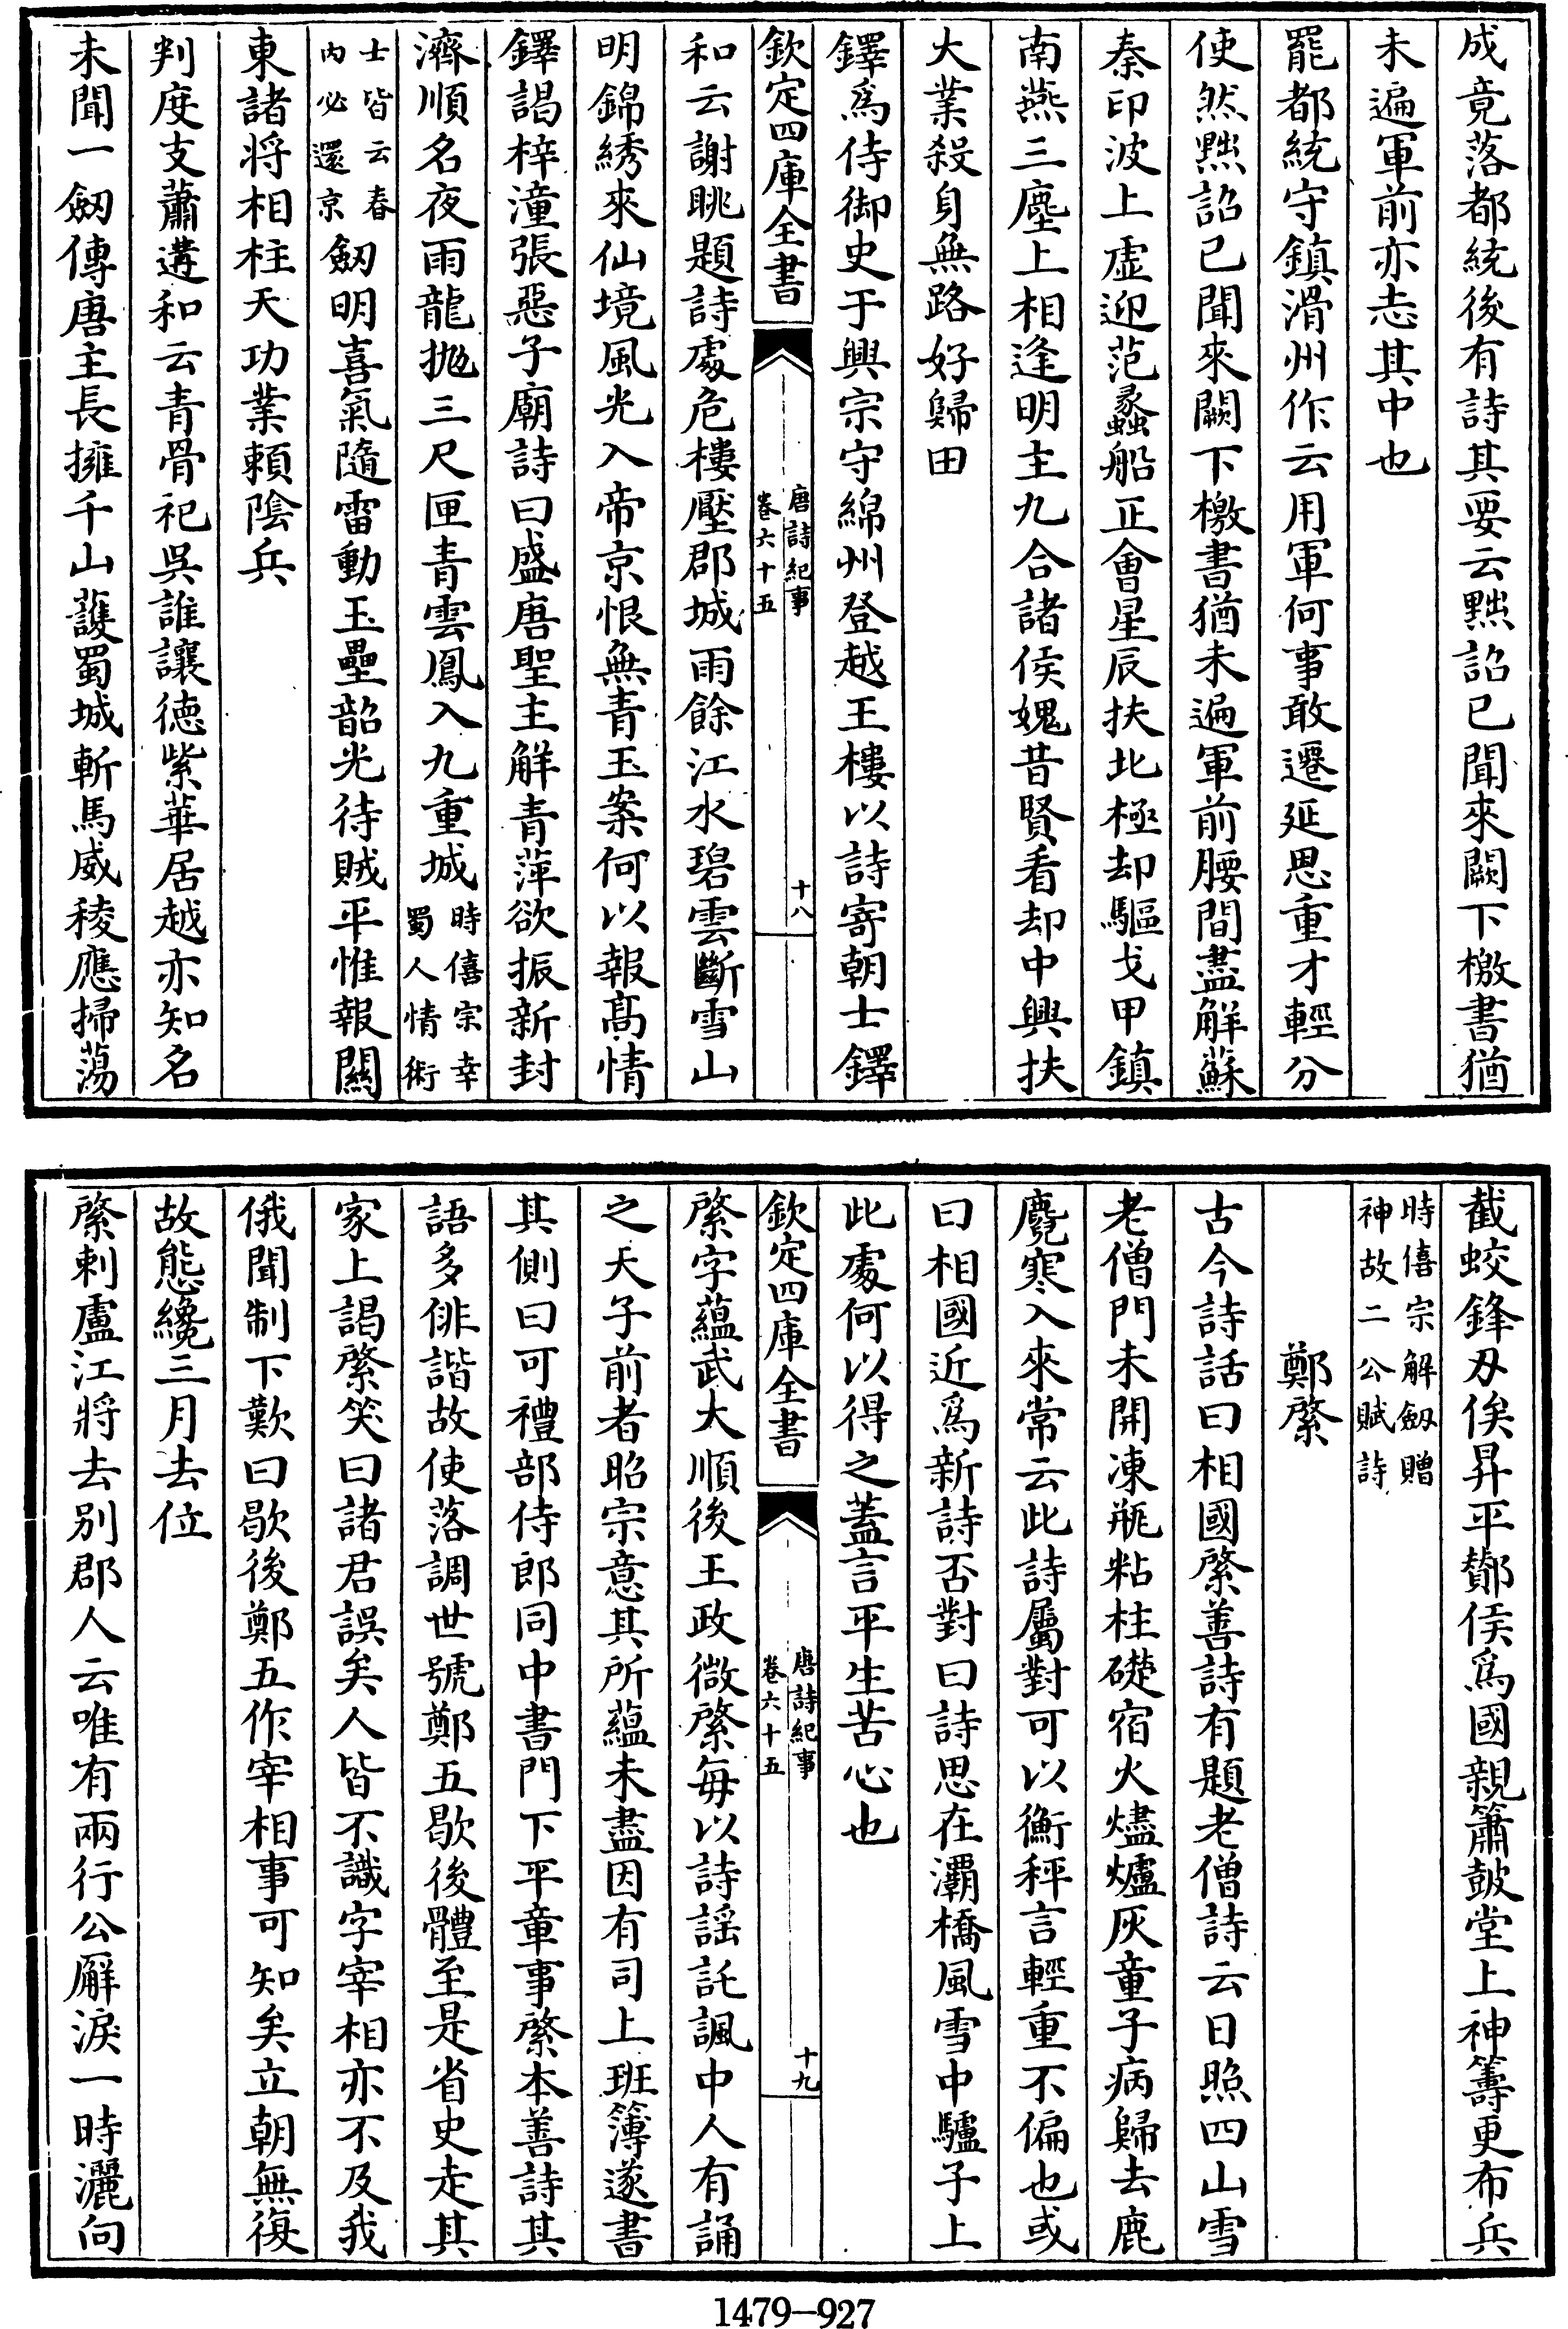 成竟落都統後有詩其要云黜詔已聞來闕下檄書猶
未遍軍前亦志其中也
罷都統守鎮滑州作云用軍何事敢遷延恩重才輕分
使然黜詔已聞來闕下檄書猶未遍軍前腰間盡解蘇
秦印波上虛迎范蠡船正會星辰扶北極却驅戈甲鎮
南燕三塵上相逢明主九合諸侯媿昔賢看却中興扶
大業殺身無路好歸田
鐸爲侍御史于興宗守綿州登越王樓以詩寄朝士鐸
欽定四庫全書
唐詩紀事
卷六十五
十八
和云謝眺題詩處危樓壓郡城雨餘江水碧雲斷雪山
明錦綉來仙境風光入帝京恨無青玉案何以報髙情
鐸謁梓潼張惡子廟詩曰盛唐聖主解青萍欲振新封
濟順名夜雨龍抛三尺匣青雲鳳入九重城時僖宗幸蜀人情術
士皆云春內必還京劔明喜氣隨雷動玉壘韶光待賊平惟報關
東諸将相柱天功業頼隂兵
判度支蕭遘和云青骨祀吳誰讓徳紫華居越亦知名
未聞一劔傳唐主長擁千山護蜀城斬馬威稜應掃蕩
截蛟鋒刃俟昇平鄼侯爲國親簫鼓堂上神籌更布兵
時僖宗解劔贈神故二公賦詩
鄭綮
古今詩話曰相國綮善詩有題老僧詩云日照四山雪
老僧門未開凍瓶粘柱礎宿火燼爐灰童子病歸去鹿
麑寒入來常云此詩屬對可以衡秤言輕重不偏也或
曰相國近爲新詩否對曰詩思在灞橋風雪中驢子上
此處何以得之葢言平生苦心也
欽定四庫全書
唐詩紀事
卷六十五
十九
綮字藴武大順後王政微綮每以詩謡託諷中人有誦
之天子前者昭宗意其所藴未盡因有司上班簿遂書
其側曰可禮部侍郎同中書門下平章事綮本善詩其
語多俳諧故使落調世號鄭五歇後體至是省史走其
家上謁綮笑曰諸君誤矣人皆不識字宰相亦不及我
俄聞制下歎曰歇後鄭五作宰相事可知矣立朝無復
故態纔三月去位
綮刺盧江將去别郡人云唯有兩行公廨淚一時灑向
1479-927